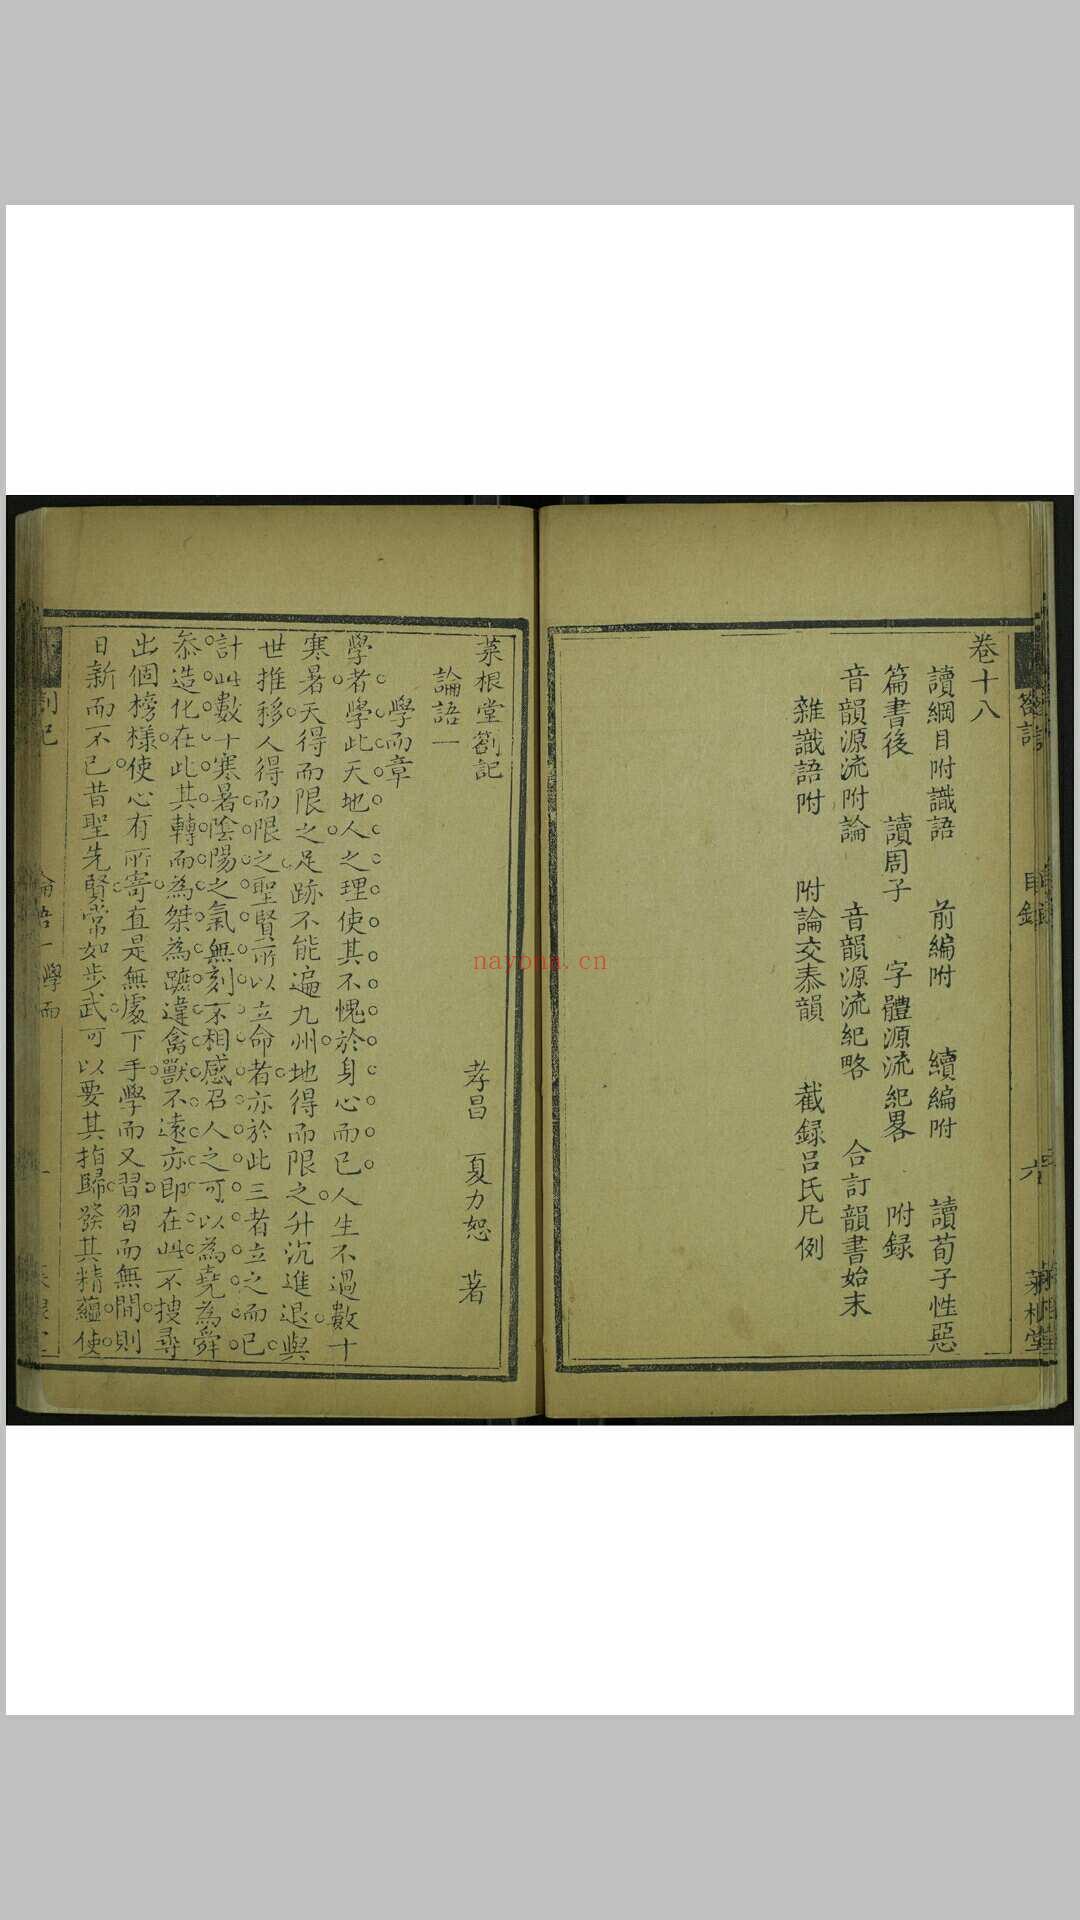 卷十八
讀綱目附識語　前編附　續編附　讀荀子性惡
篇書後　讀周子　字體源流紀畧　附録
音韻源流附論　音韻源流紀略　合訂韻書始末
雜識語附　附論交泰韻　截録吕氏凡例
目錄
六
菜根堂
菜根堂劄記　孝昌　夏力恕　著
論語一
學而章
學者學此天地人之理使其不愧於身心而已人生不過數十
寒暑天得而限之足跡不能遍九州地得而限之升沉進退與
世推移人得而限之聖賢所以立命者亦於此三者立之而已
計此數十寒暑陰陽之氣無刻不相感召人之可以為堯為舜
叅造化在此其轉而為桀為蹠違禽獸不遠亦即在此不搜尋
出個榜樣使心有所寄直是無處下手學而又習習而無間則
日新而不已昔聖先賢常如步武可以要其指歸發其精蘊使
劄記
論語一 學而
一
nayona.cn